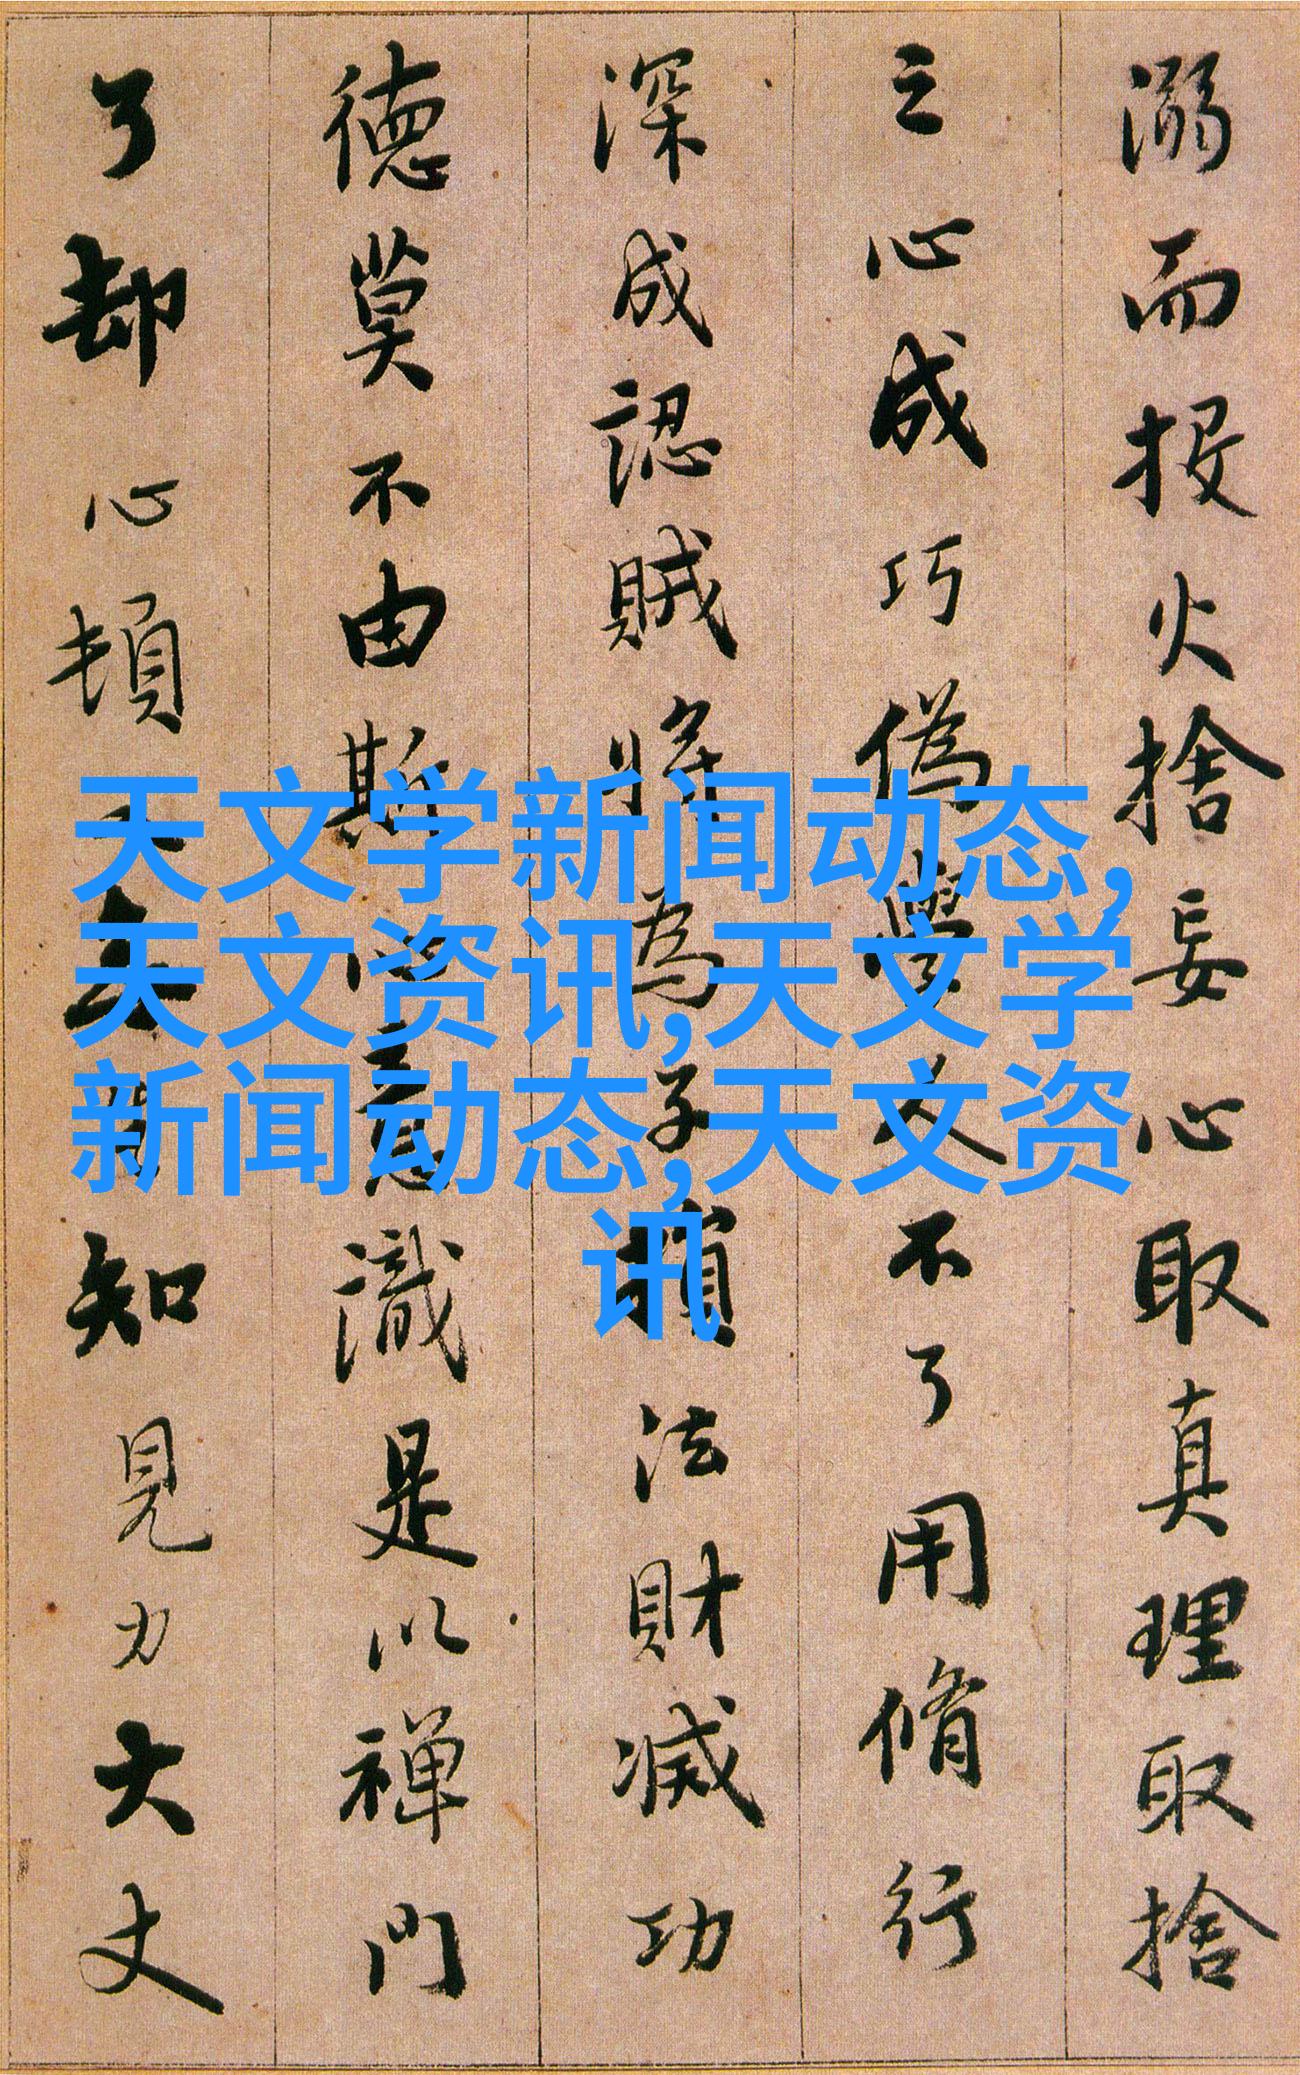 溺而投火捨妄心取真理取捨
之心成巧偽學人不了用脩行
深成認賊將為子損法財滅功
德莫不由斯心意識是以禪門
了却心頓知見力大丈
天文学新闻动态,
天文资讯,天文学
新闻动态,天文资
讯